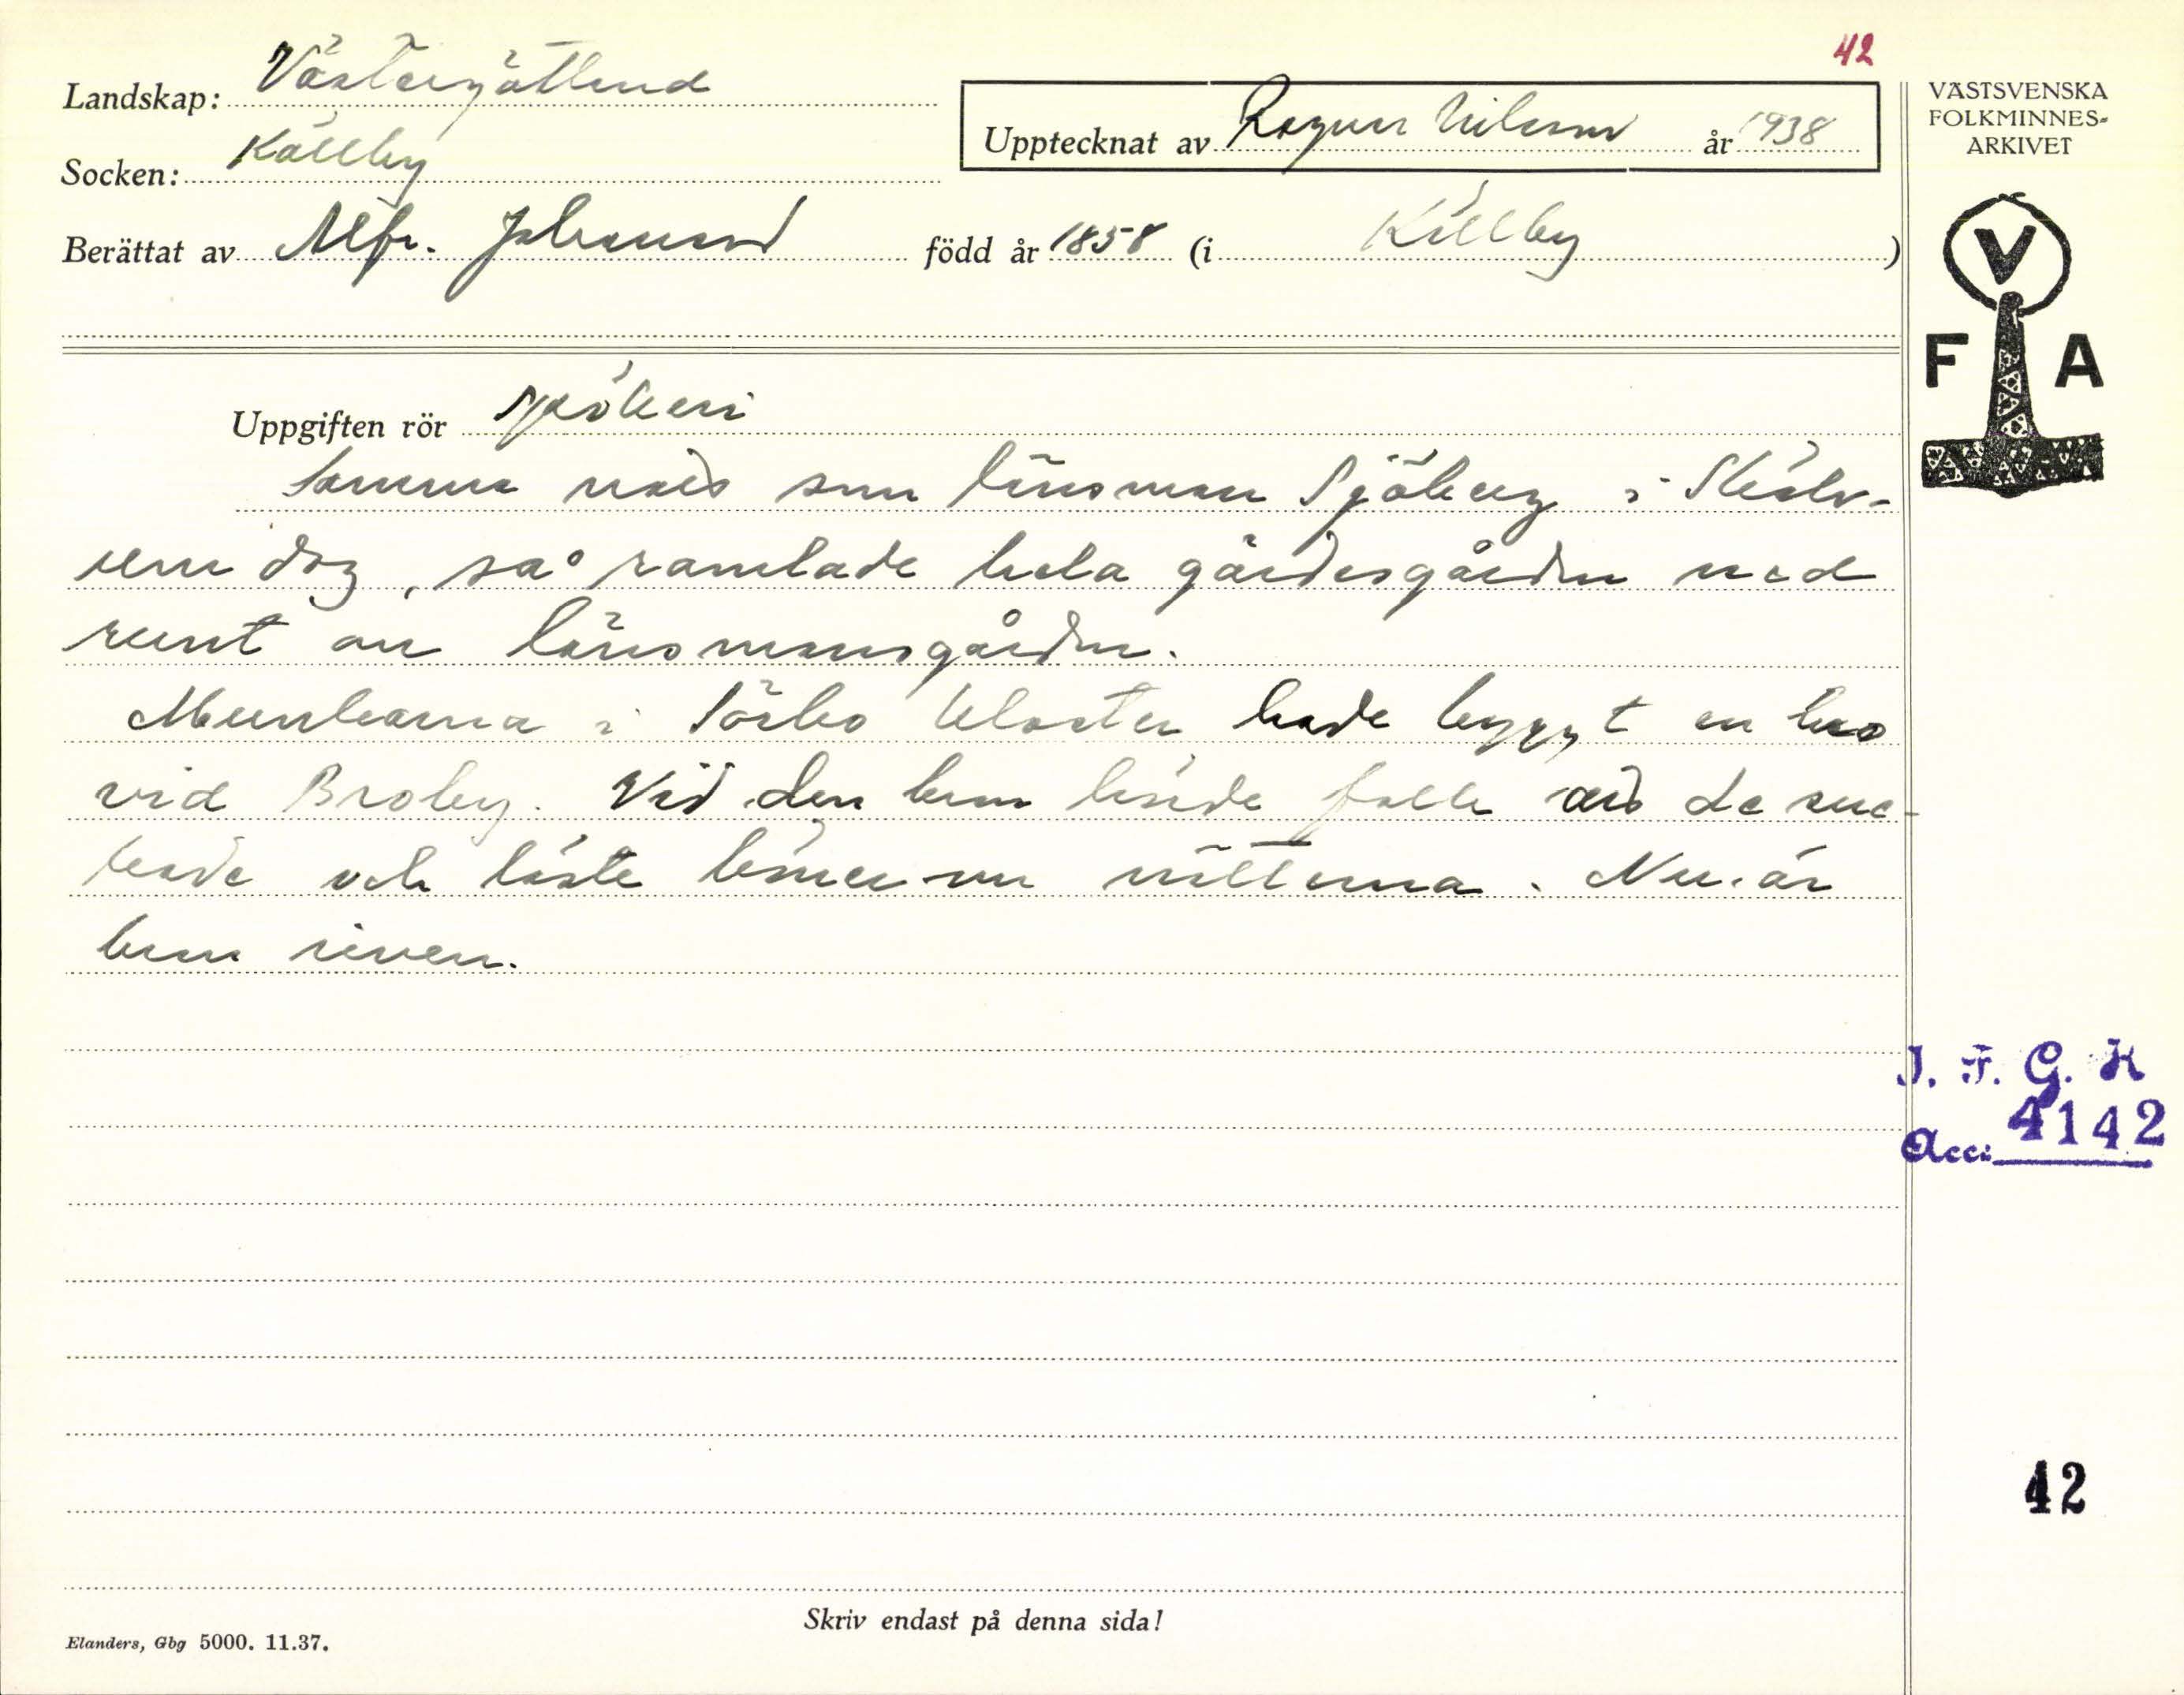 42
Landskap: Västergötland
Upptecknat av Ragnar Nilsson år 1938
Socken: Källby
Berättat av Alfr. Johansson född år 1858 (i Källby)
VÄSTSVENSKA
FOLKMINNES-
ARKIVET
V
F A
Uppgiften rör Spökeri
Samma när som länsman Sjöberg i Skälv-
um dog, så ramlade hela gärdesgården ned
runt om länsmansgården.
Munkarna i Lösbo kloster hade byggt en bro
vid Broby. Vid den bron hörde folk att de suc-
kade och läste böner om nätterna. Nu är
bron riven.
I. F. G. H
Acc: 4142
42
Skriv endast på denna sida!
Elanders, Gbg 5000. 11.37.